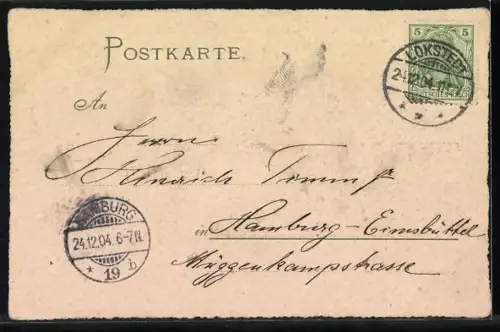 POSTKARTE.
5 5
LOKSTEDT
24.12.04.
An
Herrn
Hinrich Timm jr
HAMBURG
24.12.04. 6-7 N.
* 19 b
in Hamburg-Eimsbüttel
Müggenkampstrasse